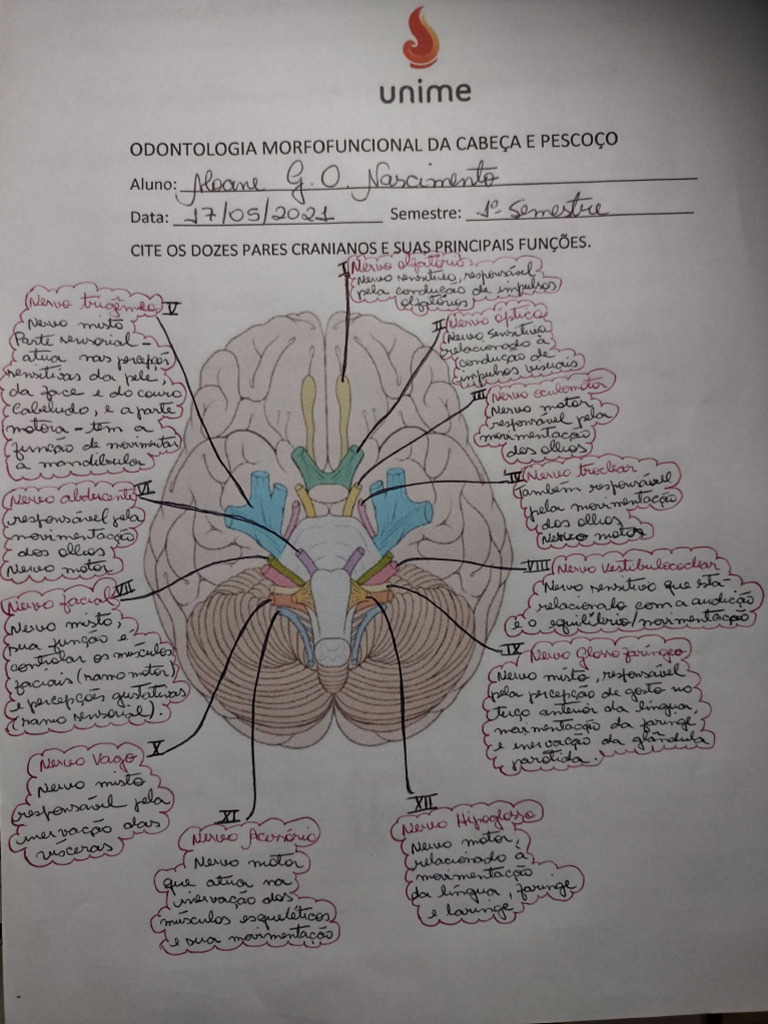 unime
ODONTOLOGIA MORFOFUNCIONAL DA CABEÇA E PESCOÇO
Aluno: Aloane G. O. Nascimento
Data: 17/05/2021 Semestre: 1º Semestre
CITE OS DOZES PARES CRANIANOS E SUAS PRINCIPAIS FUNÇÕES.
I
Nervo olfatório,
Nervo sensitivo, responsável
pela condução de impulsos
olfatórios
II
Nervo óptico
Nervo sensitivo
relacionado à
condução de
impulsos visuais
III
Nervo oculomotor
Nervo motor
responsável pela
movimentação
dos olhos
IV
Nervo troclear
Também responsável
pela movimentação
dos olhos
Nervo motor
V
Nervo trigêmeo
Nervo misto
Parte sensorial -
atua nas percepções
sensitivas da pele,
da face e do couro
cabeludo, e a parte
motora - tem a
função de movimentar
a mandíbula
VI
Nervo abducente
responsável pela
movimentação
dos olhos
Nervo motor
VII
Nervo facial
Nervo misto,
sua função é
controlar os músculos
faciais (ramo motor)
e percepções gustativas
(ramo sensorial).
VIII
Nervo vestibulococlear
Nervo sensitivo que está
relacionado com a audição
e o equilíbrio/movimentação
IX
Nervo glossofaríngeo
Nervo misto, responsável
pela percepção de gosto no
terço anterior da língua,
movimentação da faringe
e inervação da glândula
parótida.
X
Nervo Vago
Nervo misto
responsável pela
inervação das
vísceras
XI
Nervo Acessório
Nervo motor
que atua na
inervação dos
músculos esqueléticos
e sua movimentação
XII
Nervo Hipoglosso
Nervo motor,
relacionado à
movimentação
da língua, faringe
e laringe